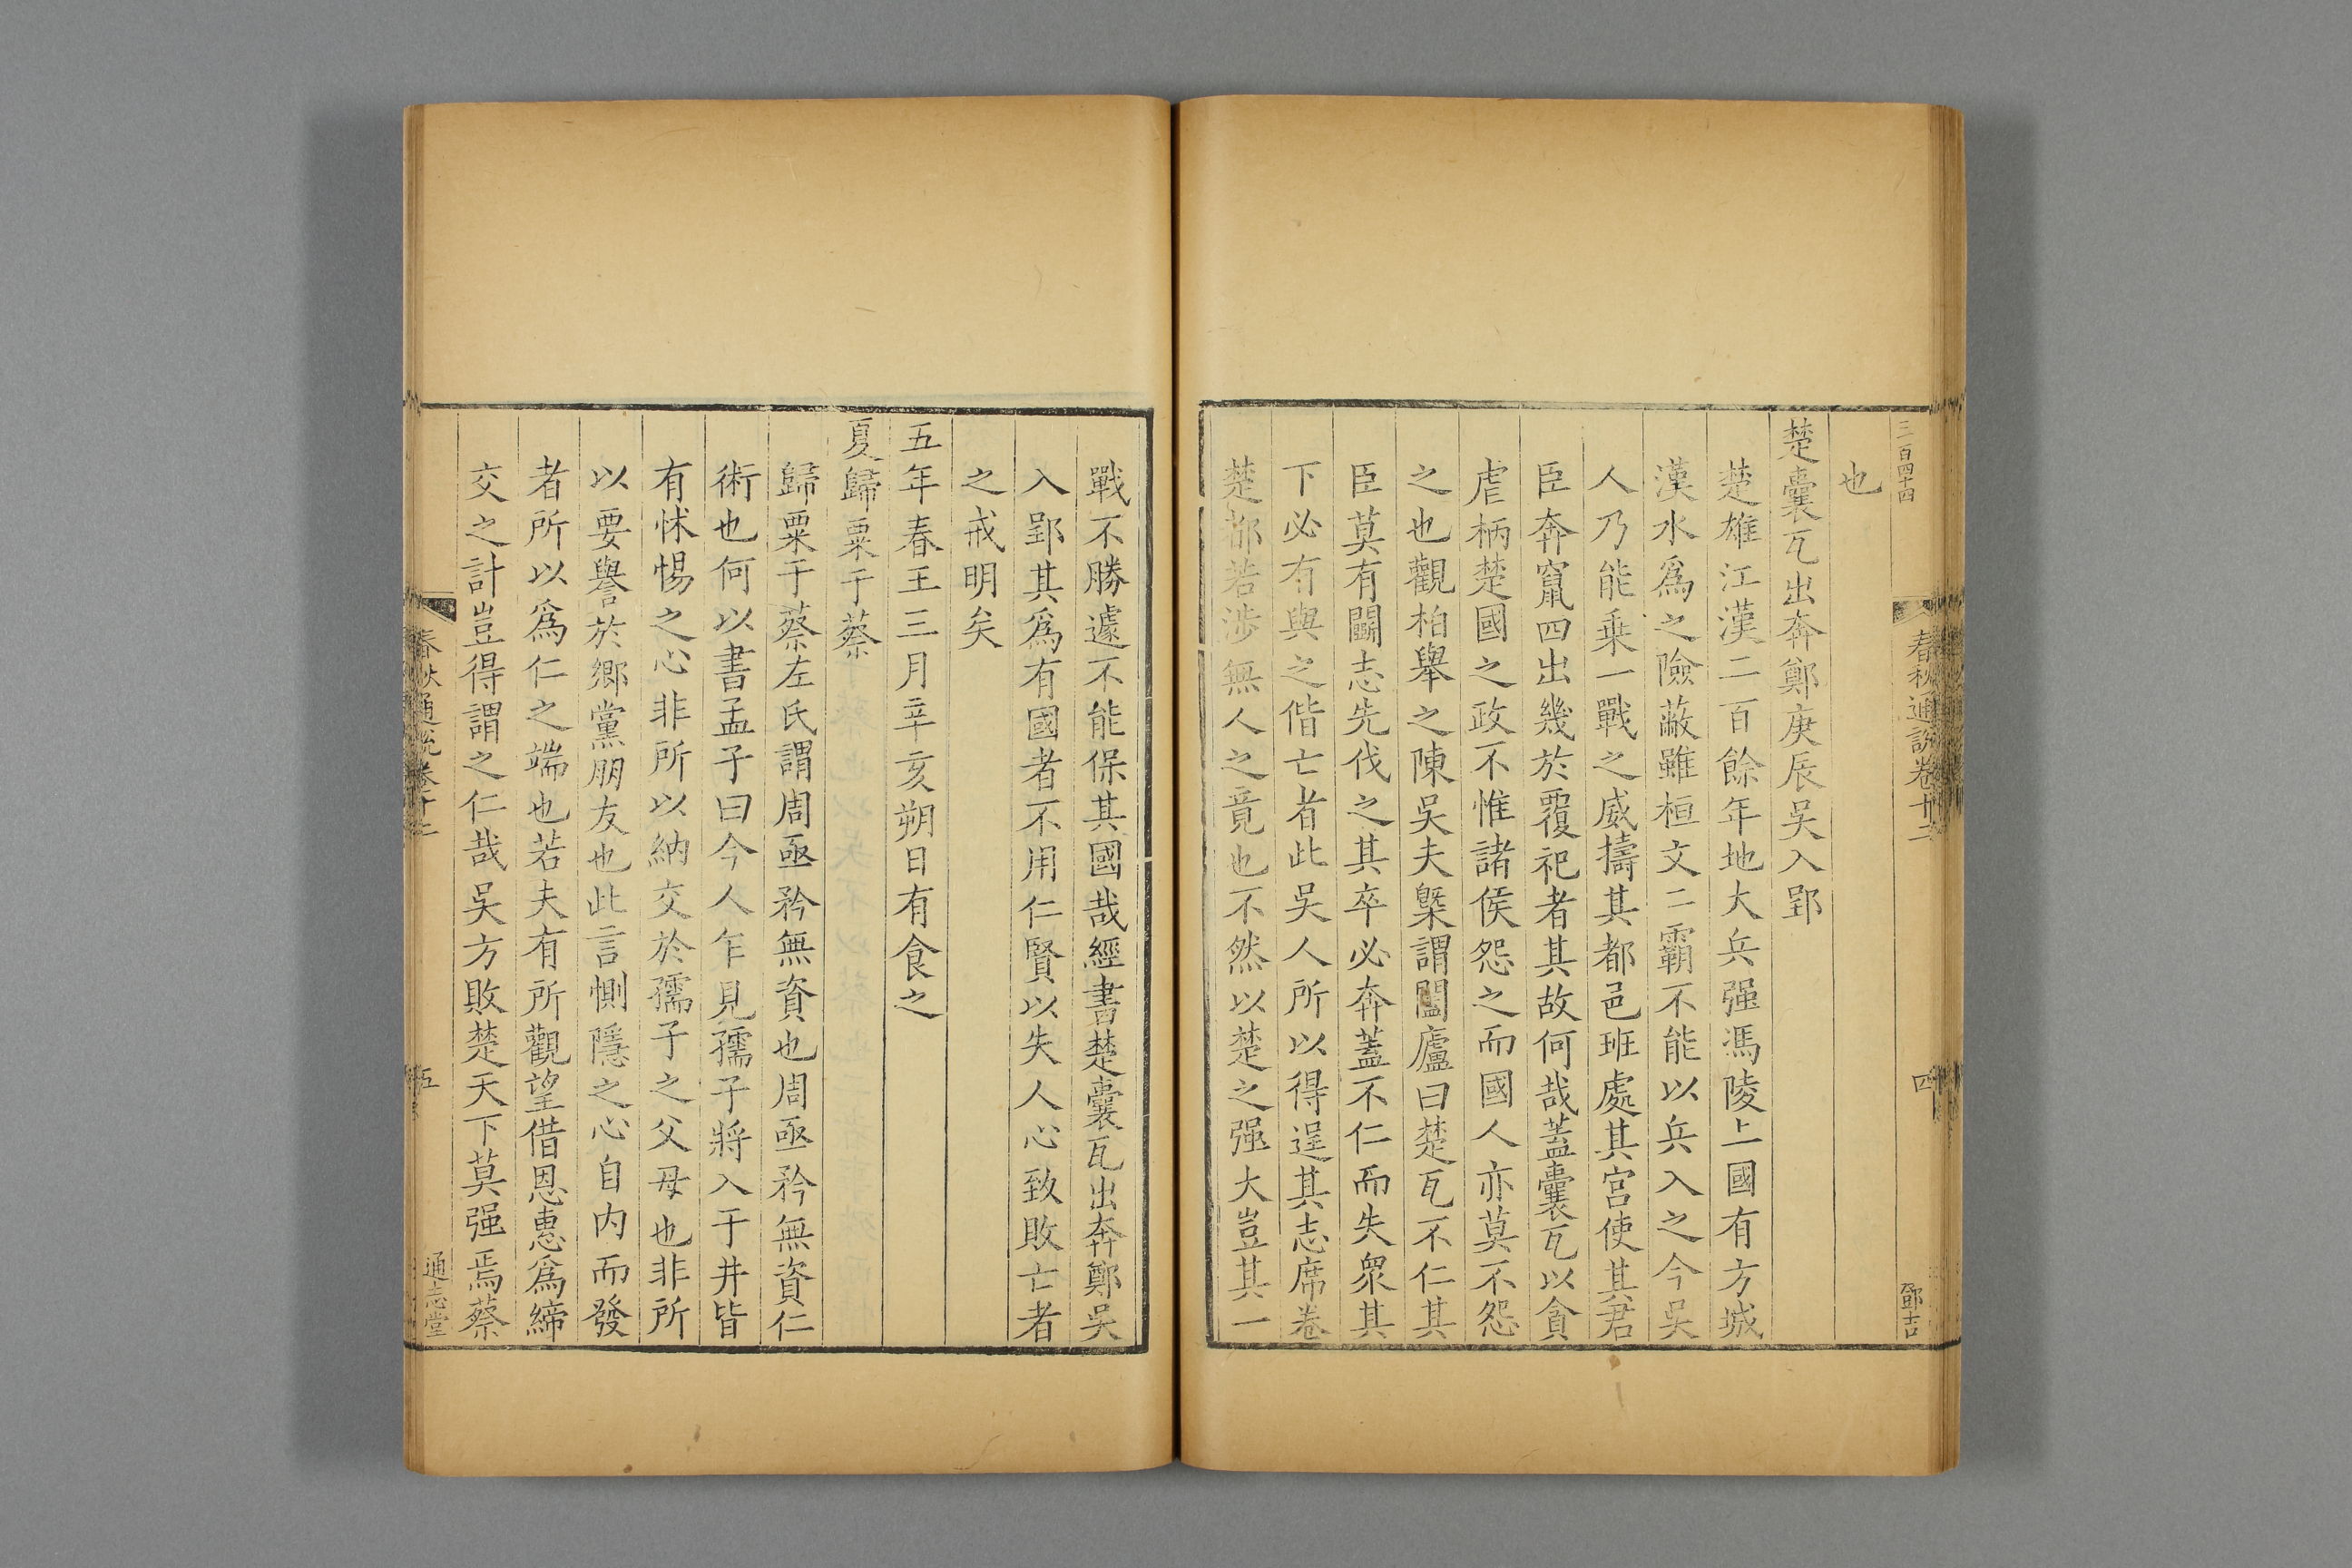 三百四十四
春秋通說卷十二
四
鄧吉
也
楚囊瓦出奔鄭庚辰吳入郢
楚雄江漢二百餘年地大兵强馮陵上國有方城
漢水爲之險蔽雖桓文二霸不能以兵入之今吳
人乃能乗一戰之威擣其都邑班處其宮使其君
臣奔竄四出幾於覆祀者其故何哉蓋囊瓦以貪
虐柄楚國之政不惟諸侯怨之而國人亦莫不怨
之也觀柏舉之陳吳夫槩謂闔廬曰楚瓦不仁其
臣莫有鬭志先伐之其卒必奔蓋不仁而失衆其
下必有與之偕亡者此吳人所以得逞其志席卷
楚都若涉無人之竟也不然以楚之强大豈其一
戰不勝遽不能保其國哉經書楚囊瓦出奔鄭吳
入郢其爲有國者不用仁賢以失人心致敗亡者
之戒明矣
五年春王三月辛亥朔日有食之
夏歸粟于蔡
歸粟于蔡左氏謂周亟矜無資也周亟矜無資仁
術也何以書孟子曰今人乍見孺子將入于井皆
有怵惕之心非所以納交於孺子之父母也非所
以要譽於鄉黨朋友也此言惻隱之心自内而發
者所以爲仁之端也若夫有所觀望借恩惠爲締
交之計豈得謂之仁哉吳方敗楚天下莫强焉蔡
春秋通說卷十二
五
通志堂